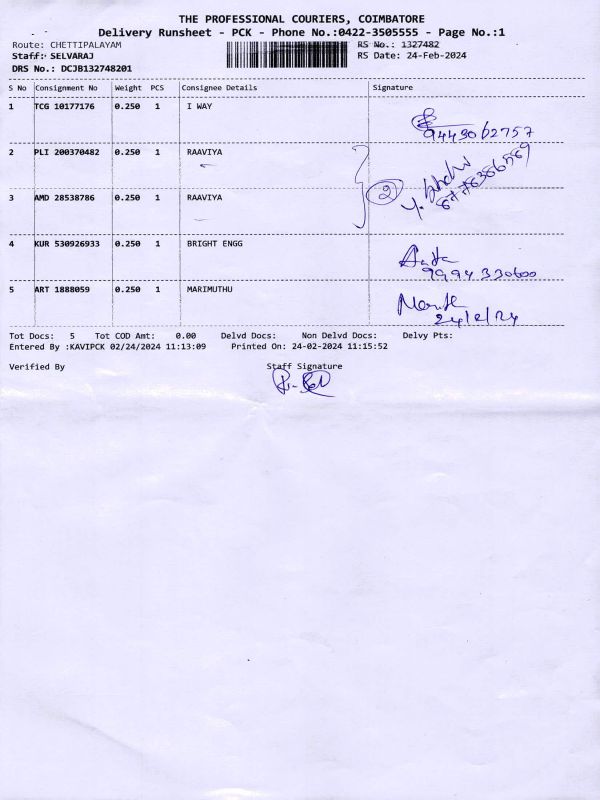 THE PROFESSIONAL COURIERS, COIMBATORE
Delivery Runsheet - PCK - Phone No.:0422-3505555 - Page No.:1
Route: CHETTIPALAYAM RS No.: 1327482
Staff: SELVARAJ RS Date: 24-Feb-2024
DRS No.: DCJB132748201
S No Consignment No Weight PCS Consignee Details Signature
1 TCG 10177176 0.250 1 I WAY
9443062757
2 PLI 200370482 0.250 1 RAAVIYA
2
3 AMD 28538786 0.250 1 RAAVIYA
4 KUR 530926933 0.250 1 BRIGHT ENGG
9994330600
5 ART 1888059 0.250 1 MARIMUTHU
24/2/24
Tot Docs: 5 Tot COD Amt: 0.00 Delvd Docs: Non Delvd Docs: Delvy Pts:
Entered By :KAVIPCK 02/24/2024 11:13:09 Printed On: 24-02-2024 11:15:52
Verified By Staff Signature